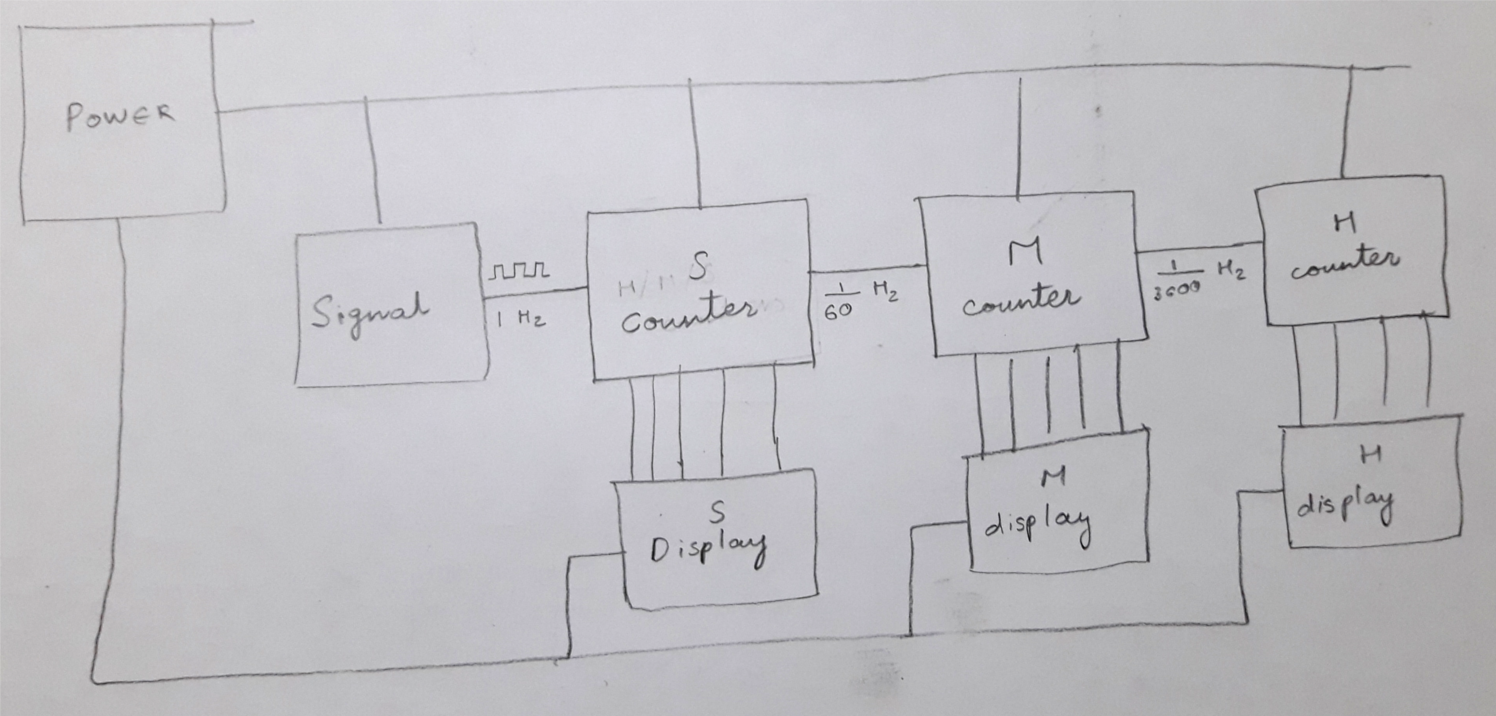 POWER
Signal
1 Hz
S
Counter
1/60 Hz
M
counter
1/3600 Hz
H
counter
S
Display
M
display
H
display